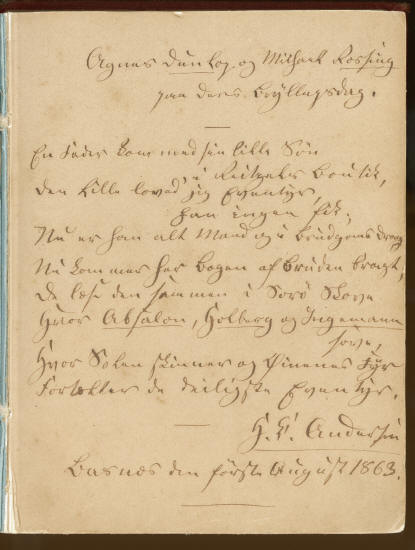 Agnes Dunlop og Michael Rossing
paa deres Bryllupsdag.
En Fader kom med sin lille Søn
i Reitzels Boutik,
den Lille loved jeg Eventyr,
han ingen fik;
Nu er han alt Mand og i Brudgoms Dragt,
Nu kommer her Bogen af Bruden bragt,
De læse den sammen i Sorø Skove
Hvor Absalon, Holberg og Ingemann
sove,
Hvor Solen skinner og Øinenes Fyr
Fortæller de deiligste Eventyr.
H. C. Andersen
Basnæs den første August 1863.